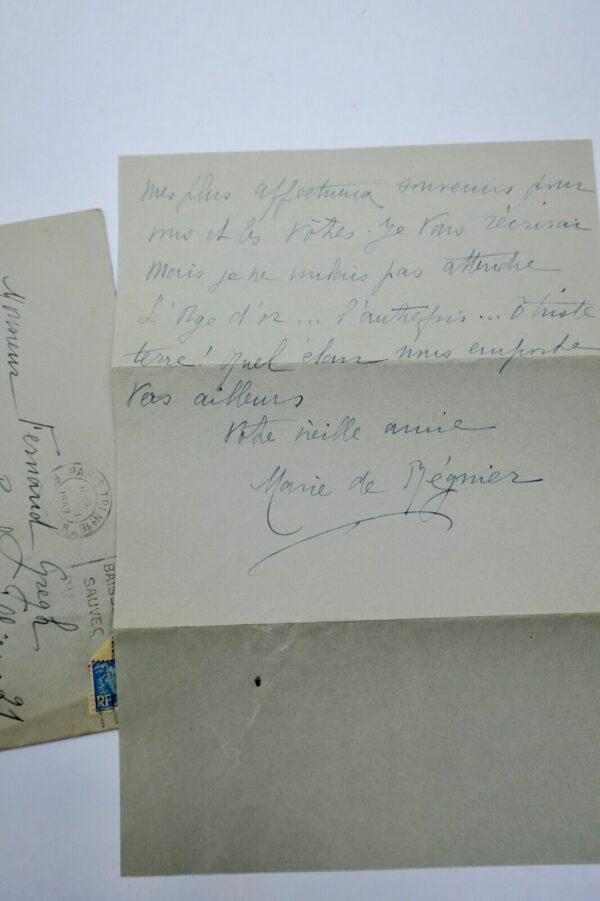 mes plus affectueux souvenirs pour
vous et les vôtres. Je vous récrirai
mais je ne voulais pas attendre
L'Age d'or... l'autrefois... O triste
terre! Quel élan nous emporte
vers ailleurs
Votre vieille amie
Marie de Régnier
Monsieur Fernand Gregh
PARIS TRI Nº
1947
BAIS
SAUVEG
RF